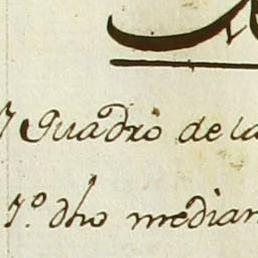 Quadro de la
1º dho median